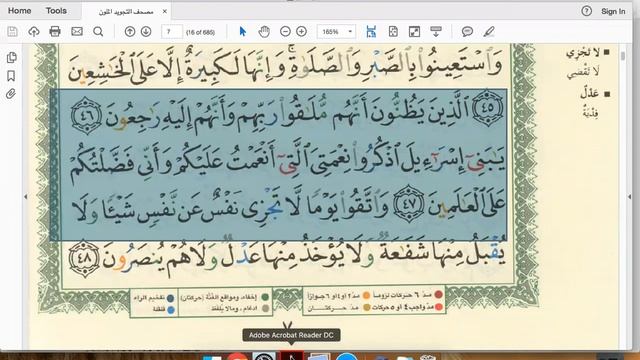 Home Tools مصحف التجويد الملون × Sign In
7 (16 of 685) 165%
وَٱسْتَعِينُوا۟ بِٱلصَّبْرِ وَٱلصَّلَوٰةِ ۚ وَإِنَّهَا لَكَبِيرَةٌ إِلَّا عَلَى ٱلْخَٰشِعِينَ
٤٥ ٱلَّذِينَ يَظُنُّونَ أَنَّهُم مُّلَٰقُوا۟ رَبِّهِمْ وَأَنَّهُمْ إِلَيْهِ رَٰجِعُونَ ٤٦
يَٰبَنِىٓ إِسْرَٰٓءِيلَ ٱذْكُرُوا۟ نِعْمَتِىَ ٱلَّتِىٓ أَنْعَمْتُ عَلَيْكُمْ وَأَنِّى فَضَّلْتُكُمْ
عَلَى ٱلْعَٰلَمِينَ ٤٧ وَٱتَّقُوا۟ يَوْمًا لَّا تَجْزِى نَفْسٌ عَن نَّفْسٍ شَيْـًٔا وَلَا
يُقْبَلُ مِنْهَا شَفَٰعَةٌ وَلَا يُؤْخَذُ مِنْهَا عَدْلٌ وَلَا هُمْ يُنصَرُونَ ٤٨
لَا تَجْزِي
لَا تَقْضِي
عَدْلٌ
فِدْيَةٌ
مدّ ٦ حركات لزوماً مدّ ٢ أو ٤ أو ٦ جوازاً إخفاء، ومواقع الغُنَّة (حركتان) تفخيم الراء
مدّ واجب ٤ أو ٥ حركات مدّ حركتان إدغام، وما لا يُلفظ قلقلة
٧
Adobe Acrobat Reader DC